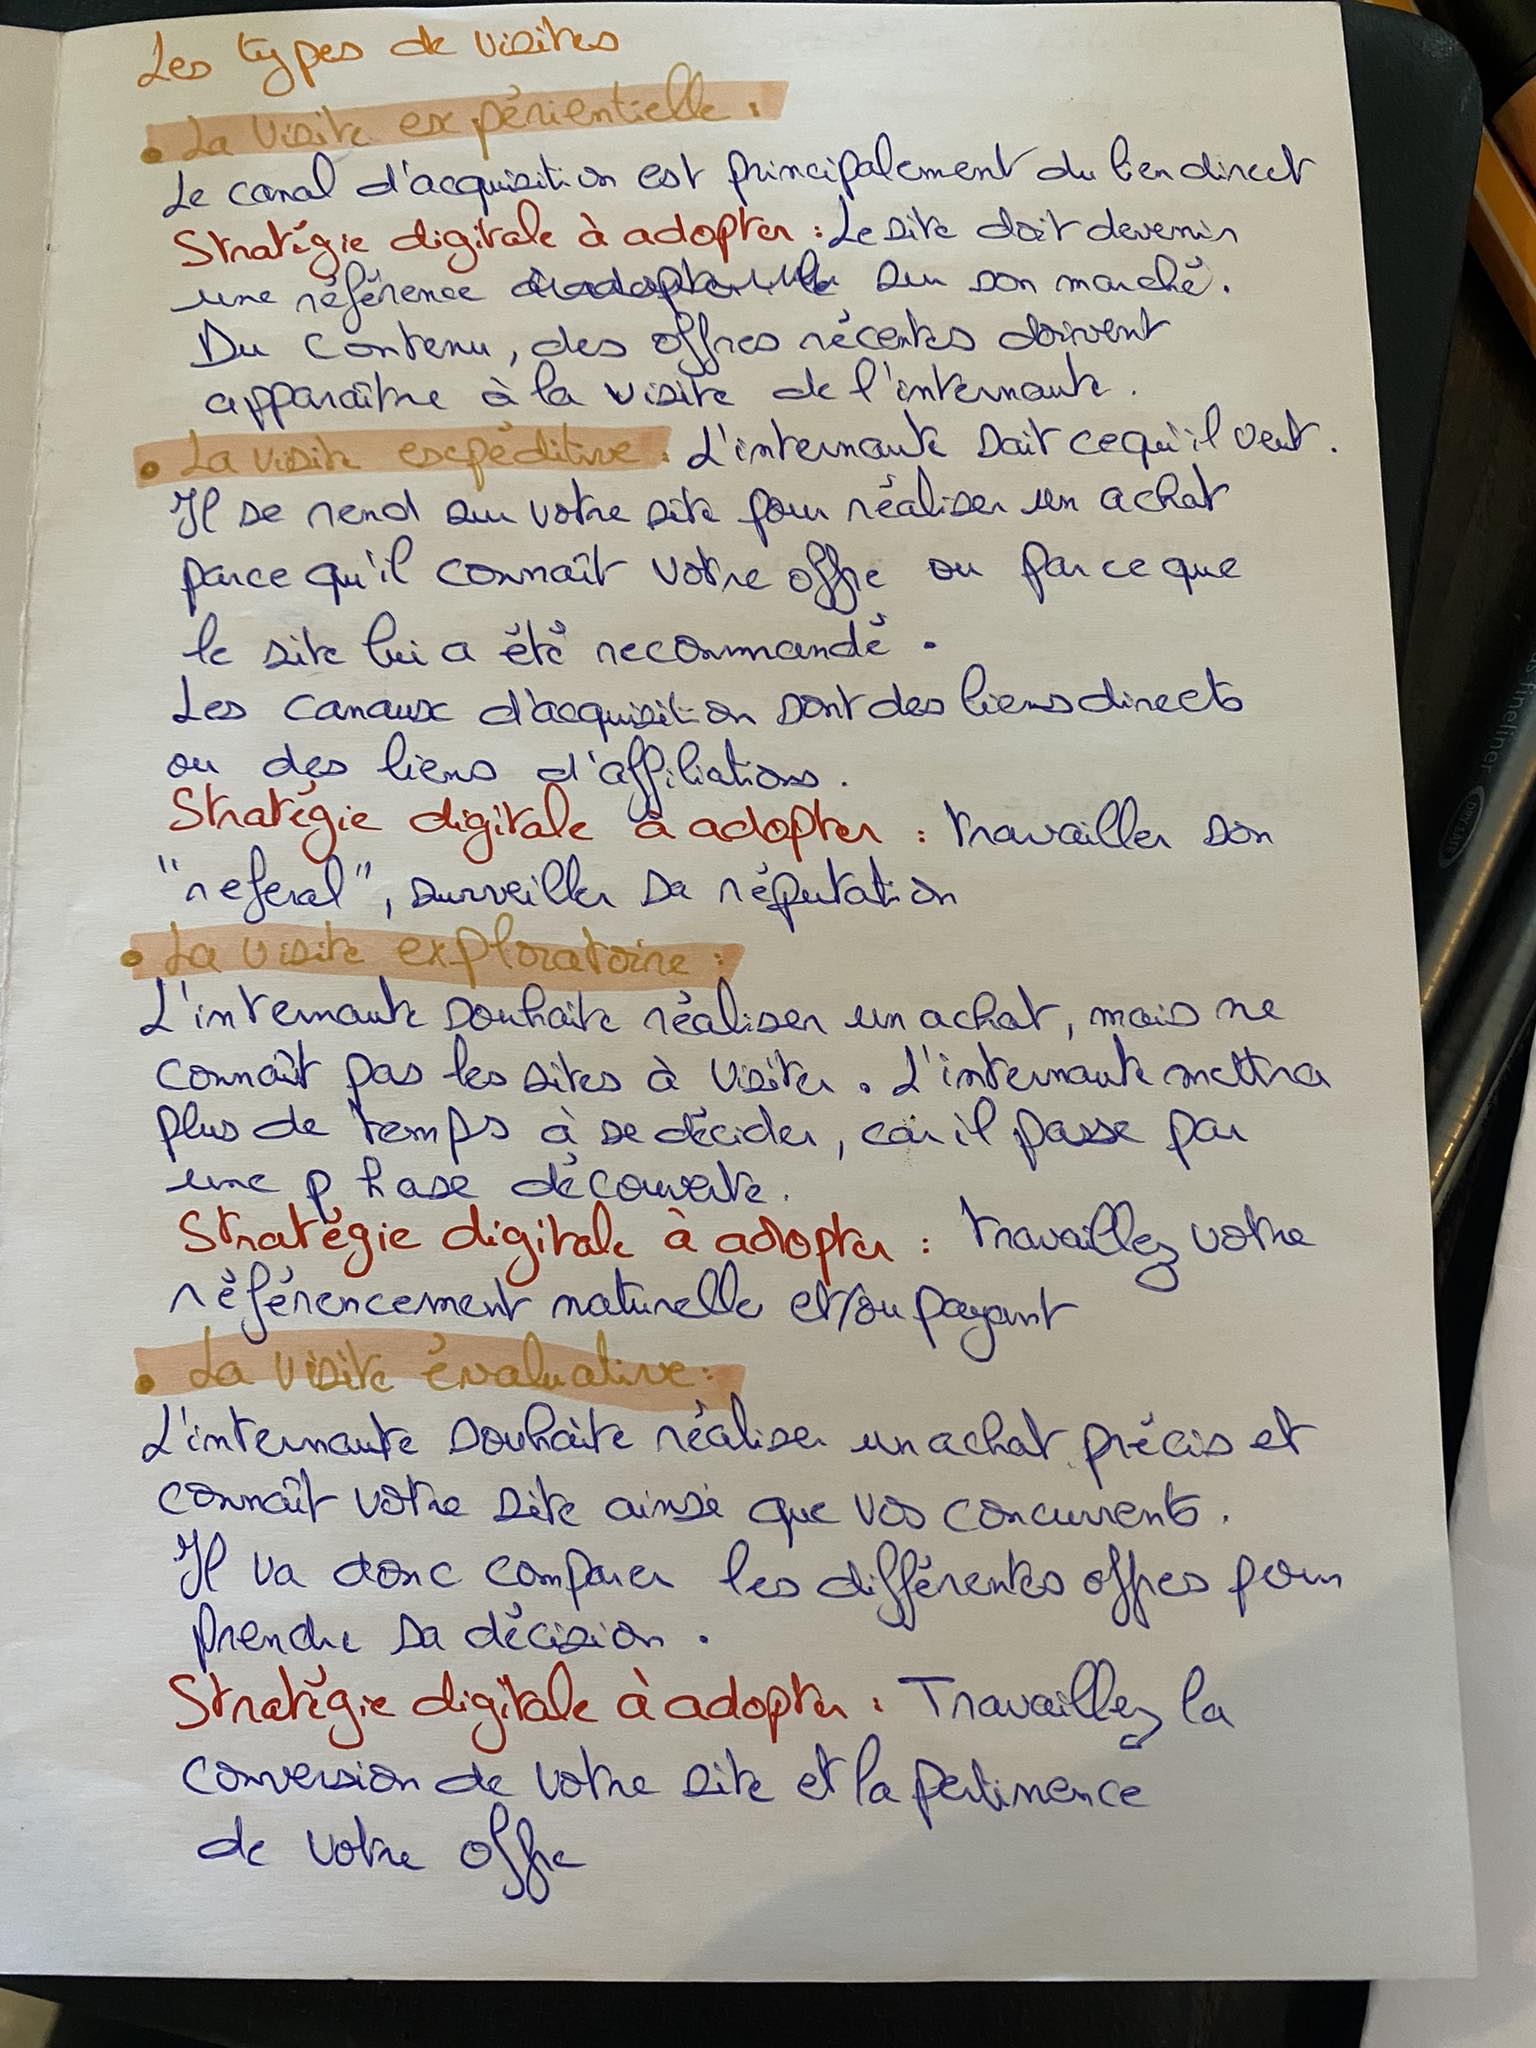 Les types de visites
• La visite expérientielle :
Le canal d'acquisition est principalement du lien direct
Stratégie digitale à adopter : Le site doit devenir
une référence sur son marché.
Du contenu, des offres récentes doivent
apparaître à la visite de l'internaute.
• La visite expéditive : L'internaute sait ce qu'il veut.
Il se rend sur votre site pour réaliser un achat
parce qu'il connaît votre offre ou parce que
le site lui a été recommandé.
Les canaux d'acquisition sont des liens directs
ou des liens d'affiliations.
Stratégie digitale à adopter : travailler son
"referal", surveiller sa réputation
• La visite exploratoire :
L'internaute souhaite réaliser un achat, mais ne
connaît pas les sites à visiter. L'internaute mettra
plus de temps à se décider, car il passe par
une phase découverte.
Stratégie digitale à adopter : travaillez votre
référencement naturelle et/ou payant
• La visite évaluative :
L'internaute souhaite réaliser un achat précis et
connaît votre site ainsi que vos concurrents.
Il va donc comparer les différentes offres pour
prendre sa décision.
Stratégie digitale à adopter : Travaillez la
conversion de votre site et la pertinence
de votre offre
fineliner